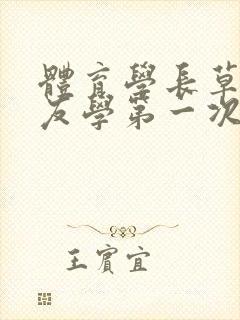 體育學長草
友學第一次
王賓宜